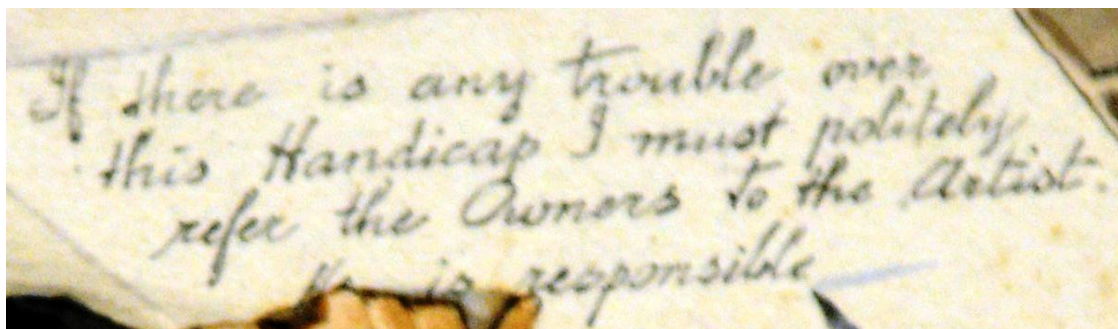 If there is any trouble over
this Handicap I must politely
refer the Owners to the Artist.
He is responsible